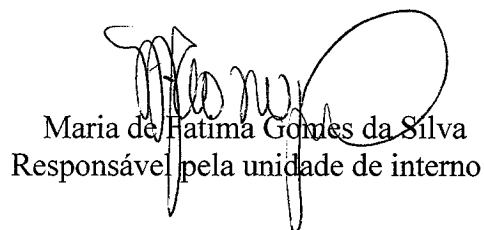 Maria de Fatima Gomes da Silva
Responsável pela unidade de interno